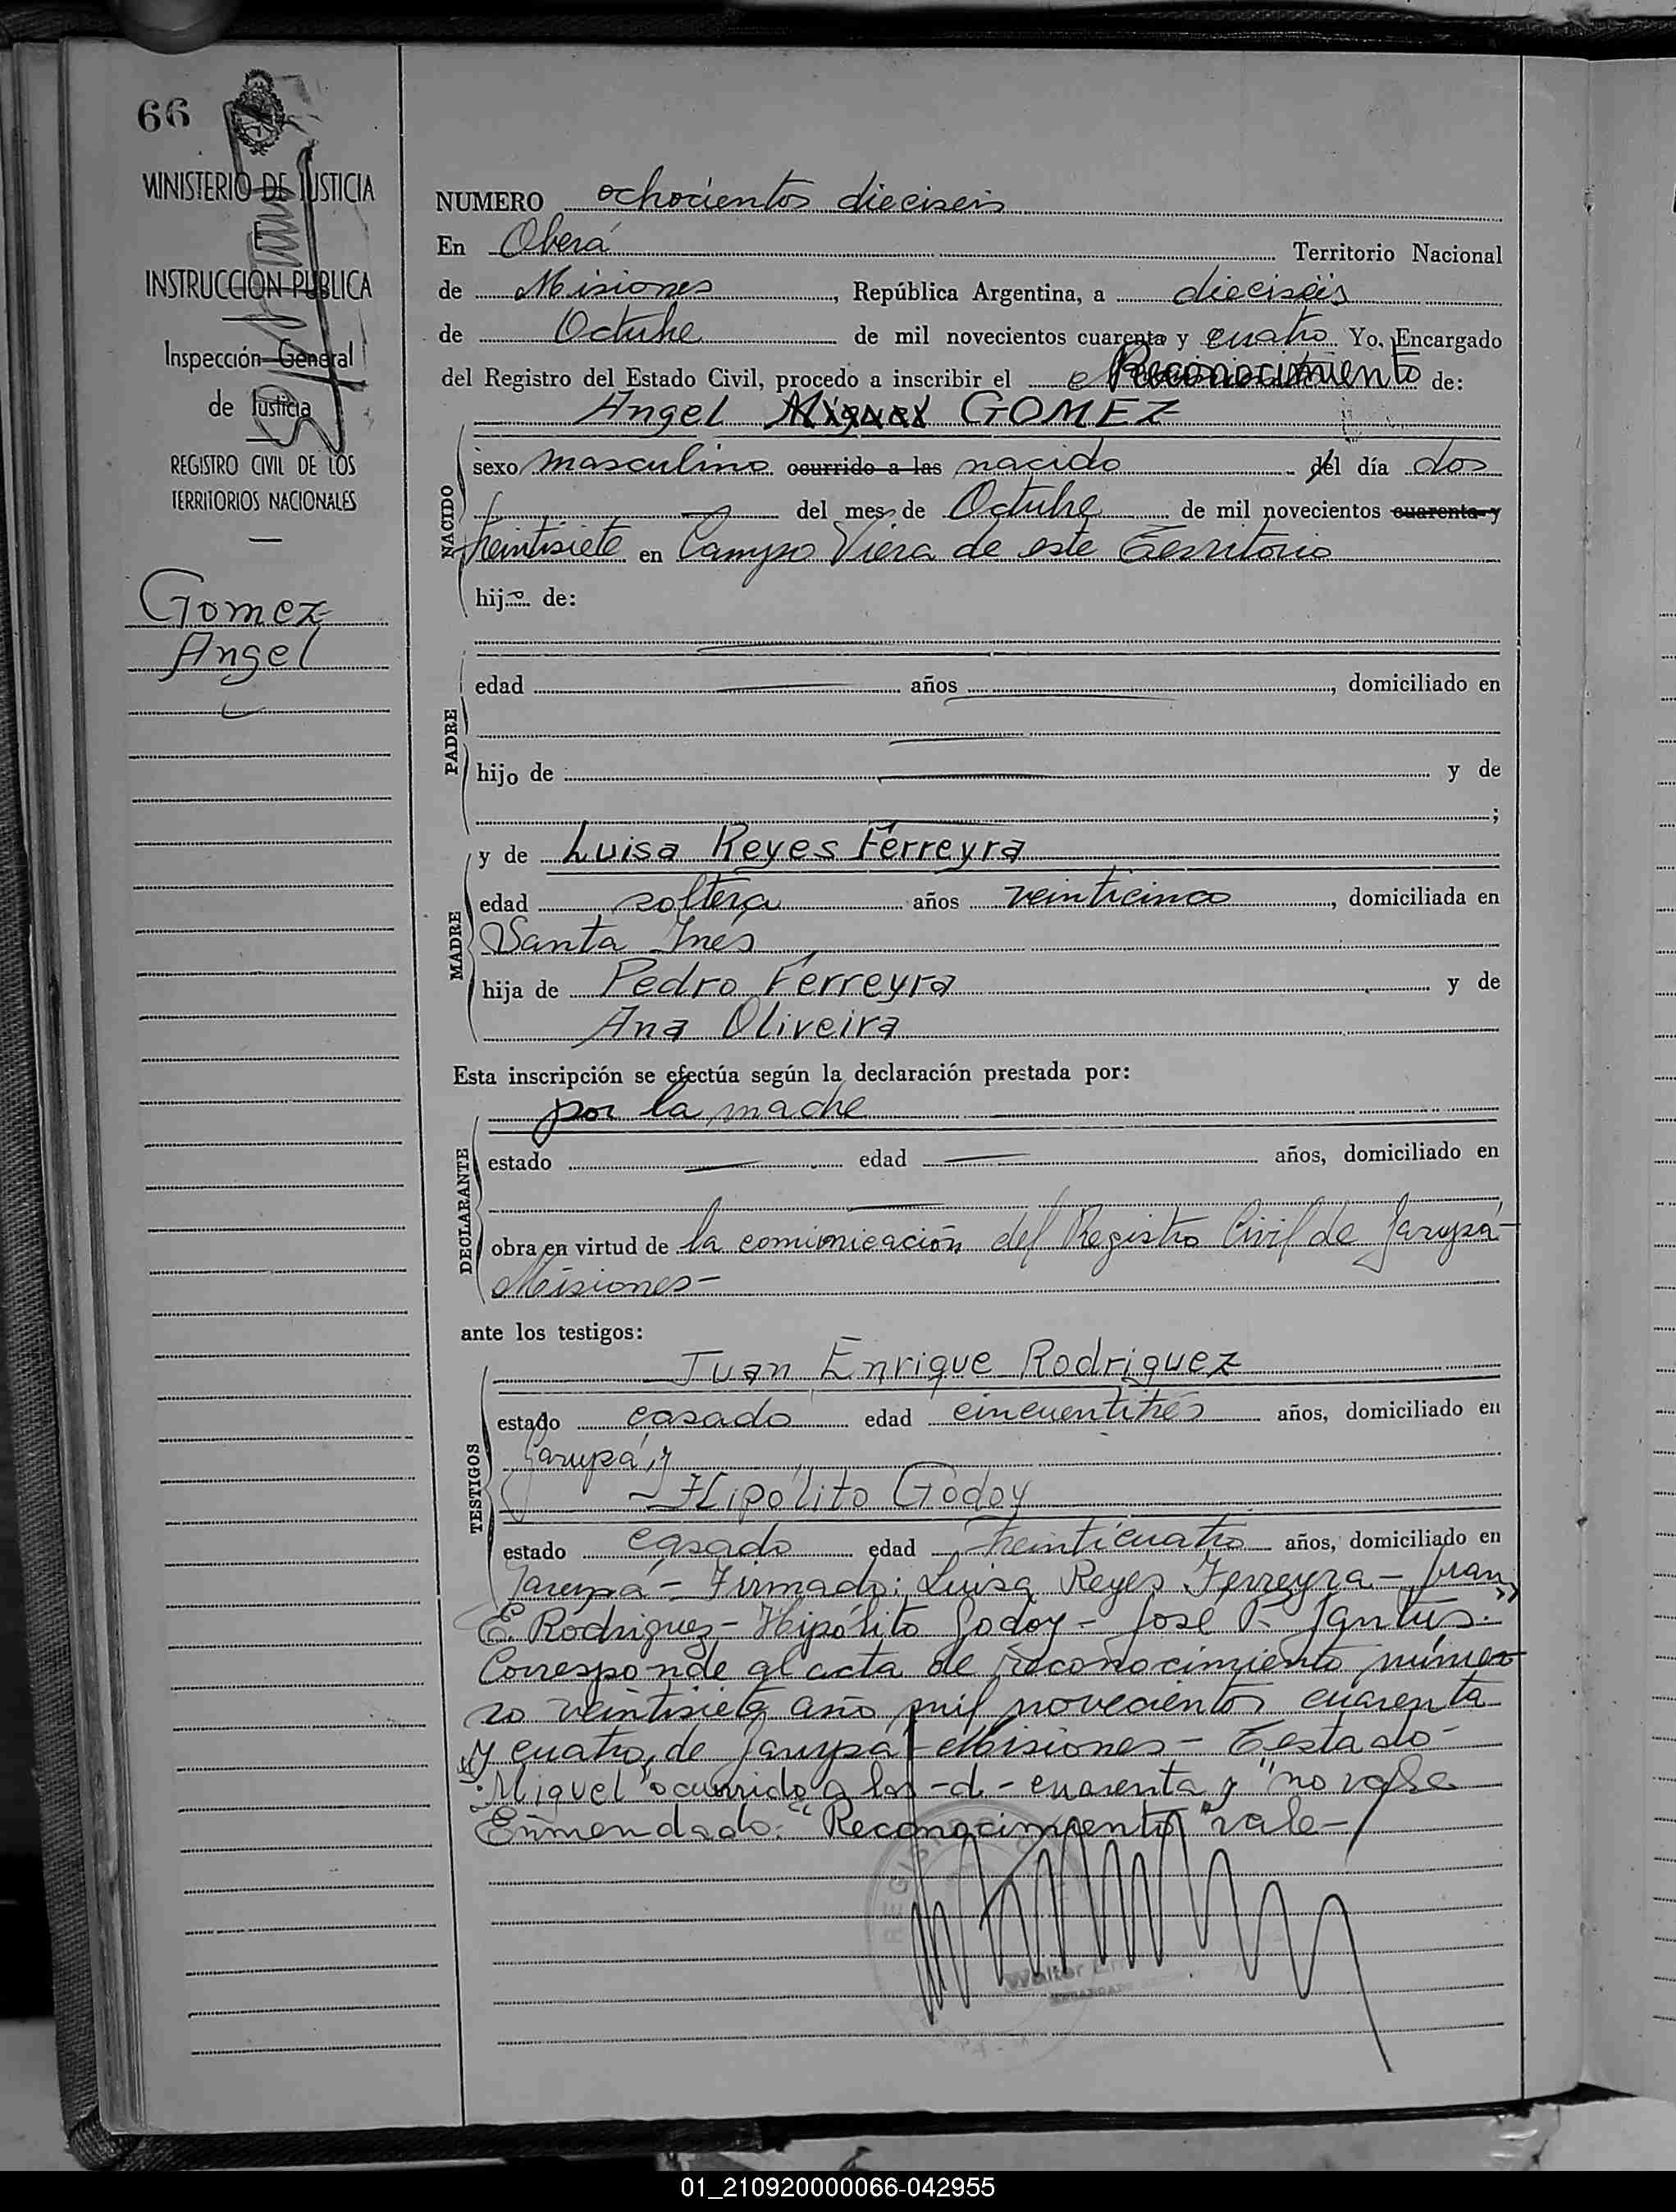 66
MINISTERIO DE JUSTICIA
E
INSTRUCCIÓN PÚBLICA
Inspección General
de Justicia
REGISTRO CIVIL DE LOS
TERRITORIOS NACIONALES
Gomez
Angel
NUMERO ochocientos dieciseis
En Oberá Territorio Nacional
de Misiones, República Argentina, a dieciseis
de Octubre de mil novecientos cuarenta y cuatro Yo, Encargado
del Registro del Estado Civil, procedo a inscribir el Reconocimiento de:
Angel Miguel GOMEZ
NACIDO
sexo masculino ocurrido a las nacido del día dos
del mes de Octubre de mil novecientos cuarenta y
treintisiete en Campo Viera de este Territorio
hijo de:
PADRE
edad años , domiciliado en
hijo de y de
;
MADRE
y de Luisa Reyes Ferreyra
edad soltera años veinticinco, domiciliada en
Santa Inés
hija de Pedro Ferreyra y de
Ana Oliveira
Esta inscripción se efectúa según la declaración prestada por:
DECLARANTE
por la madre
estado edad años, domiciliado en
obra en virtud de la comunicación del Registro Civil de Garupá-
Misiones-
ante los testigos:
TESTIGOS
Juan Enrique Rodriguez
estado casado edad cincuentitrés años, domiciliado en
Garupá, y
Hipólito Godoy
estado casado edad treinticuatro años, domiciliado en
Garupá - Firmado: Luisa Reyes Ferreyra - Juan
E. Rodriguez - Hipólito Godoy - José F. Jantus."
Corresponde al acta de reconocimiento núme-
ro veintisiete año mil novecientos cuarenta
y cuatro, de Garupá - Misiones - Testado-
"Miguel" ocurrido a las - d - cuarenta y "no vale
Enmendado: "Reconocimiento" vale-
REGIST
Walter
01_210920000066-042955